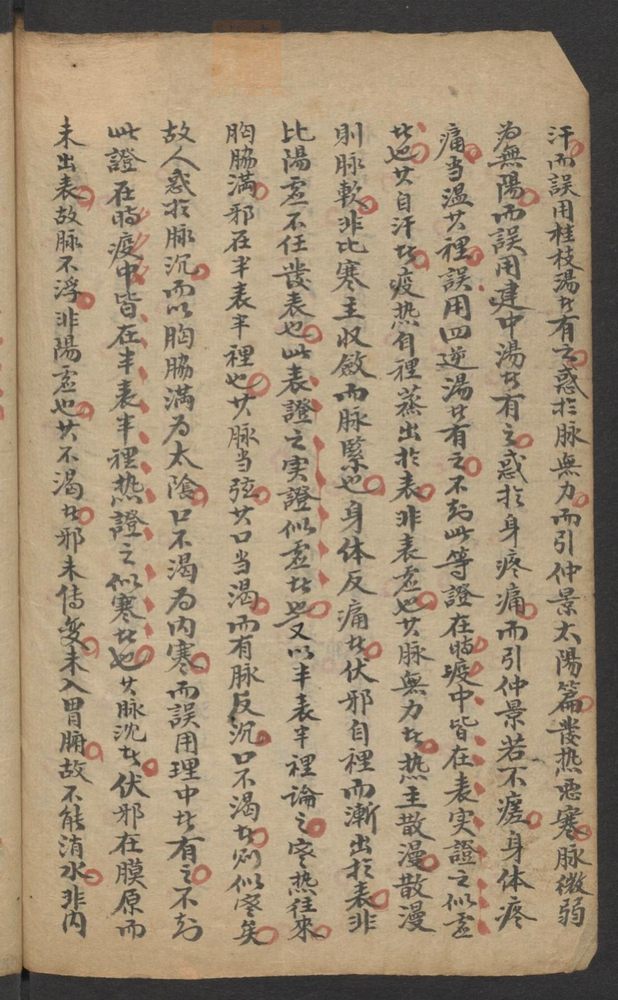 汗而誤用桂枝湯者有之惑於脉無力而引仲景太陽篇發热惡寒脉微弱
为無陽而誤用建中湯者有之惑於身疼痛而引仲景若不瘥身体疼
痛当温其裡誤用四逆湯者有之不知此等證在時疫中皆在表实證之似虚
者也其自汗者疫热自裡蒸出於表非表虚也其脉無力者热主散漫散漫
則脉軟非比寒主收斂而脉緊也身体反痛者伏邪自裡而漸出於表非
比陽虚不任發表也此表證之实證似虚者也又以半表半裡論之寒热往來
胸脇滿邪在半表半裡也其脉当弦其口当渴而有脉反沉口不渴者则似寒矣
故人惑於脉沉而以胸脇滿为太陰口不渴为内寒而誤用理中者有之不知
此證在時疫中皆在半表半裡热證之似寒者也其脉沉者伏邪在膜原而
未出表故脉不浮非陽虚也其不渴者邪未傳變未入胃腑故不能消水非内